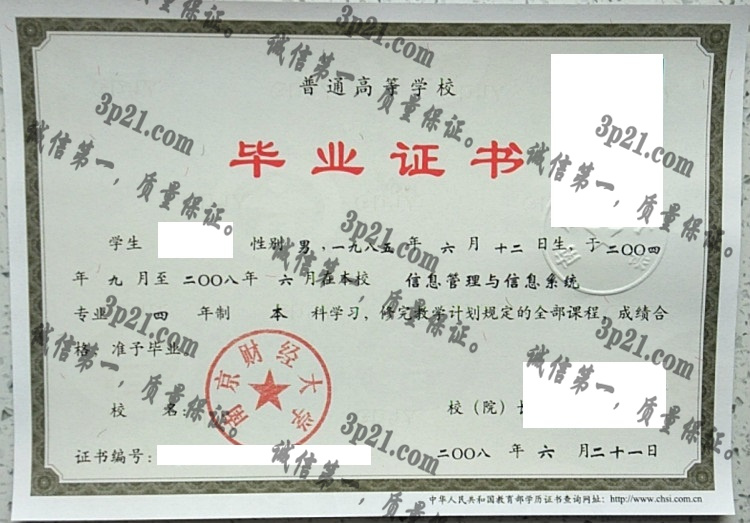 普通高等学校
毕业证书
学生 性别 男，一九八五年 六 月 十二 日生，于二〇〇四
年 九 月至 二〇〇八年 六 月在本校 信息管理与信息系统
专业 四 年制 本 科学习，修完教学计划规定的全部课程，成绩合
格，准予毕业
南京财经大学
校 名： 校（院）长
证书编号： 二〇〇八 年 六 月二十一日
中华人民共和国教育部学历证书查询网址：http://www.chsi.com.cn
3p21.com
诚信第一，质量保证。
3p21.com
诚信第一，质量保证。
3p21.com
诚信第一，质量保证。
3p21.com
诚信第一，质量保证。
3p21.com
诚信第一，质量保证。
3p21.com
诚信第一，质量保证。
3p21.com
诚信第一，质量保证。
3p21.com
诚信第一，质量保证。